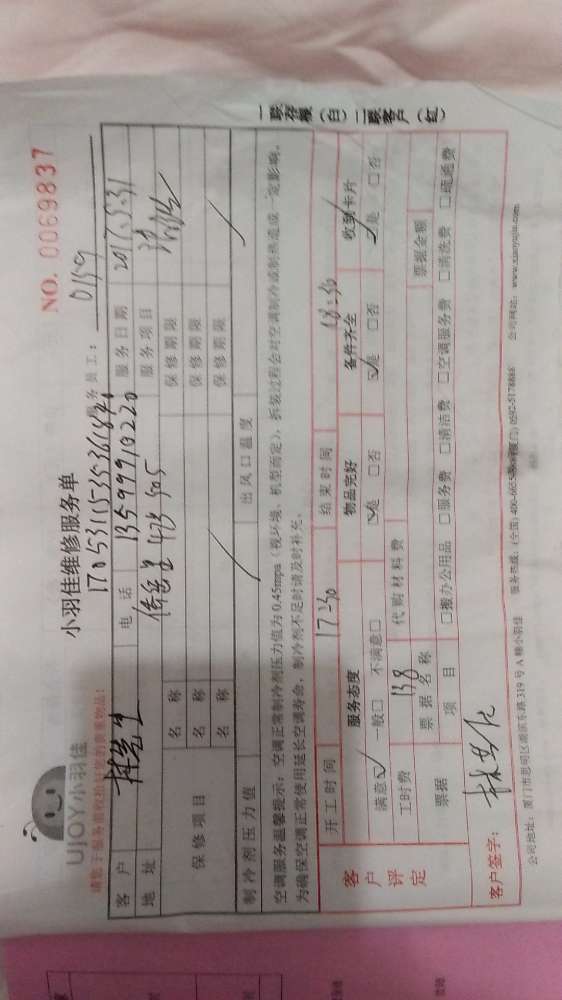 UJOY小羽佳
小羽佳维修服务单
NO. 0069837
1705311535361840
服务员工: 0159
客户 林先生 电话 13599910220 服务日期 2017.5.31
地址 侨岳里 478 505 服务项目
保修项目 名称 保修期限
名称 保修期限
名称 保修期限
制冷剂压力值 出风口温度
空调服务温馨提示: 空调正常制冷剂压力值为0.45mpa (视环境、机型而定), 拆装过程会对空调制冷或制热造成一定影响,
为确保空调正常使用延长空调寿命, 制冷剂不足时请及时补充。
开工时间 17:30 结束时间 18:30
客户评定 服务态度 物品完好 备件齐全 收到卡片
满意☑ 一般□ 不满意□ ☑是 □否 ☑是 □否 ☑是 □否
工时费 138 代购材料费
票据 票据名称 票据金额
项目 □搬办公用品 □服务费 □清洁费 □空调服务费 □清洗费 □疏通费
客户签字:
公司地址: 厦门市思明区湖滨东路319号A幢小羽佳 服务热线: (全国) (厦门) 0592-5178888 公司网站: www.xiaoyujia.com
一联存根 (白) 二联客户 (红)